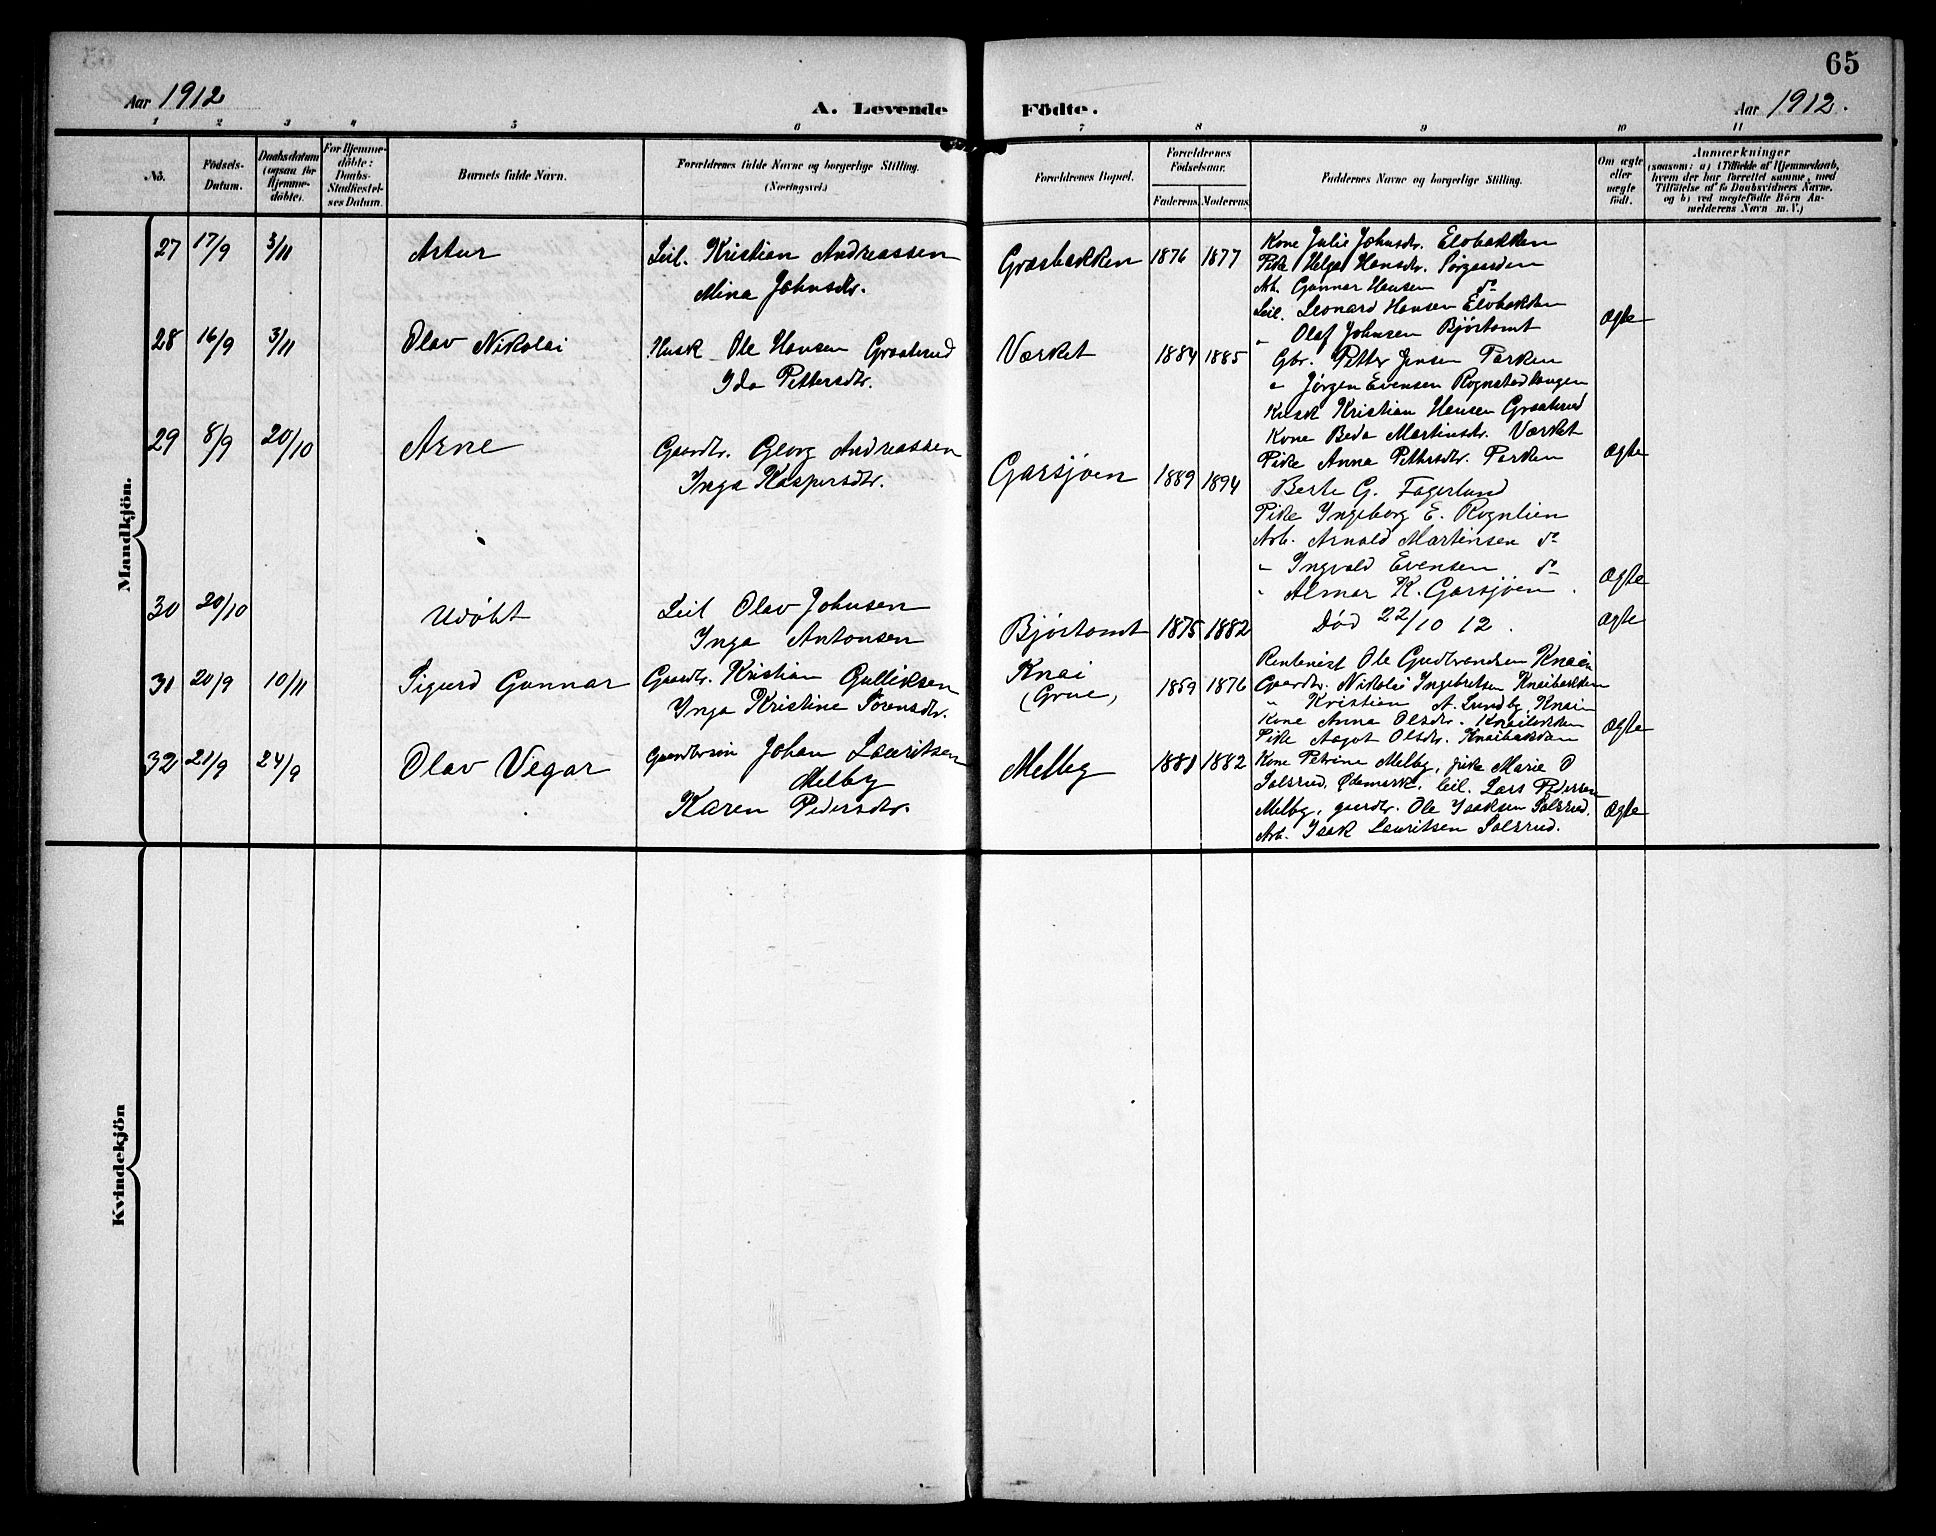 65
Aar 1912
A. Levende Födte.
Aar 1912.
1 2 3 4 5 6 7 8 9 10 11
No.
Födsels-
Datum.
Daabsdatum
(ogsaa for
Hjemme-
döbte).
For Hjemme-
döbte:
Daabs-
Stadfæstel-
ses Datum.
Barnets fulde Navn.
Forældrenes fulde Navne og borgerlige Stilling.
(Næringsvei.)
Forældrenes Bopæl.
Forældrenes
Födselsaar.
Faderens. Moderens.
Faddernes Navne og borgerlige Stilling.
Om ægte
eller
uægte
födt.
Anmærkninger
(saasom: a) i Tilfælde af Hjemmedaab,
hvem der har forrettet samme, med
Tilföielse af to Daabsvidners Navne,
og b) ved uægtefödte Börn An-
melderens Navn m. V.)
Mandkjön.
27 17/9 3/11 Artur
Leil. Kristian Andreassen
Mina Johnsdtr.
Græsbakken 1876 1877
Kone Julie Johnsdtr. Elvbakken
Pike Helga Hansdtr. Sørgaarden
Arb. Gunnar Hansen do
Leil. Leonard Hansen Elvbakken
" Olaf Johnsen Bjørtomt
Ægte
28 16/9 3/11 Olav Nikolai
Husk. Ole Hansen Graaberud
Ida Pettersdtr.
Værket 1884 1885
Gbr. Petter Jensen Parken
" Jørgen Evensen Rognstadhaugen
Kusk Kristian Hansen Graaberud
Kone Beda Martinsdtr. Værket
Pike Anna Pettersdtr. Parken
Ægte
29 8/9 20/10 Arne
Gaardbr. Georg Andreassen
Inga Kaspersdtr.
Garsjøen 1889 1894
Berte G. Fagerlund
Pike Ingeborg E. Rognlien
Arb. Arnold Martinsen do
" Ingvald Evensen do
" Almar K. Garsjøen.
Ægte
30 20/10 Udøbt
Leil Olav Johnsen
Inga Antonsen
Bjørtomt 1875 1882
Død 22/10 12.
Ægte
31 20/9 10/11 Sigurd Gunnar
Gaardbr. Kristian Gulliksen
Inga Kristine Sørensdtr.
Knai
(Grue) 1869 1876
Rentenist Ole Gudbrandsen Knai
Gaardbr. Nikolai Ingebretsen Knaibakken
" Kristian A. Lundby, Knai
Kone Anna Olsdtr. Knaibakken
Pike Aagot Olsdtr. Knaibakken
Ægte
32 21/9 24/9 Olav Vegar
Gaardbrsøn Johan Lauritsen
Melby
Karen Pedersdtr.
Melby 1881 1882
Kone Petrine Melby, pike Marie O
Solsrud, Ødemark, leil. Lars Pedersen
Melby, gaardbr. Ole Isaksen Solsrud.
Arb. Isak Lauritsen Solsrud.
Ægte
Kvindekjön